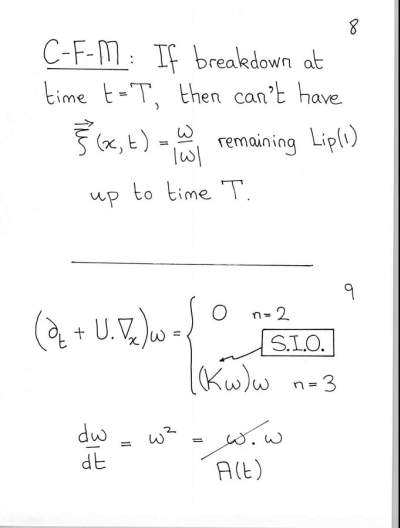 8
C-F-M: If breakdown at
time t=T, then can't have
ξ⃗(x,t) = ω/|ω| remaining Lip(1)
up to time T.
9
(∂t + U.∇x)ω = { 0 n=2
S.I.O.
(Kω)ω n=3
dω/dt = ω² = ω.ω
A(t)